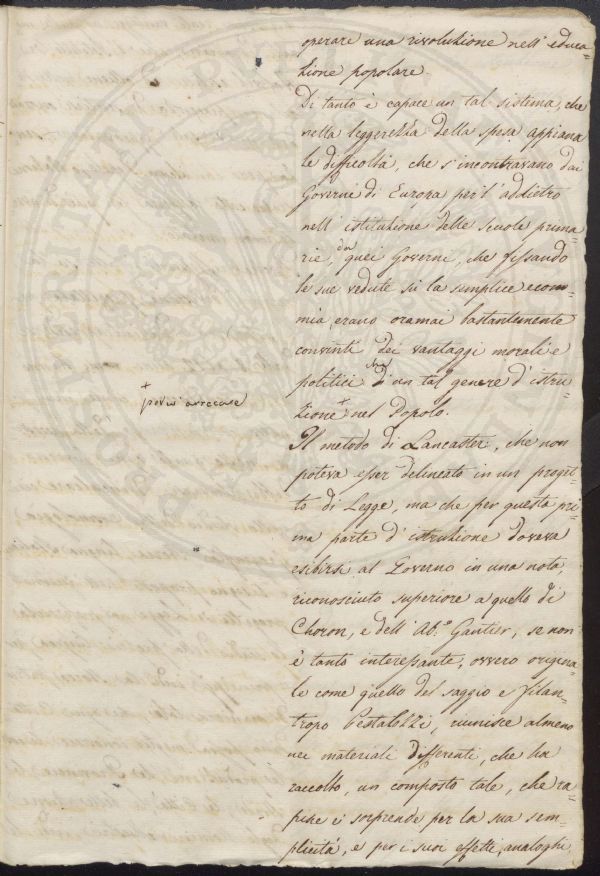 operare una rivoluzione nell' educa-
zione popolare.
Di tanto è capace un tal sistema, che
nella leggerezza della spesa appiana
le difficoltà, che s'incontravano dai
Governi di Europa per l'addietro
nell' istituzione delle Scuole prima-
rie, da quei Governi, che fissando
le sue vedute su la semplice econo-
mia, erano oramai bastantemente
convinti dei vantaggi morali e
politici che un tal genere d'istru-
zione + nel Popolo.
+
potria arrecare
Il metodo di Lancaster, che non
poteva esser delineato in un proget-
to di Legge, ma che per questa pri-
ma parte d'istruzione doveva
esibirsi al Governo in una nota,
riconosciuto superiore a quello di
Choron, e dell' Ab.e Gautier, se non
è tanto interessante, ovvero origina-
le come quello del saggio e Filan-
tropo Pestalozzi, riunisce almeno
nei materiali differenti, che ha
raccolto, un composto tale, che ra-
pisce e sorprende per la sua sem-
plicità, e per i suoi effetti, analoghi